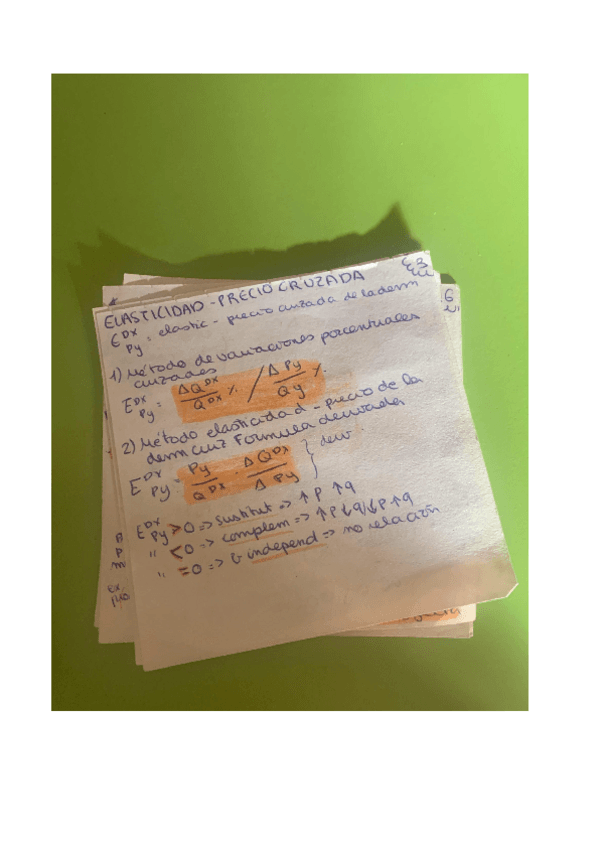 ELASTICIDAD - PRECIO CRUZADA
E DX Py = elastic - precio cruzada de la dem
1) Método de variaciones porcentuales
cruzadas
E DX Py = ΔQDX / QDX % / ΔPy / Qy %
2) Método elasticidad - precio de la
dem cruz Formula derivada
E DX Py = Py / QDX · ΔQDX / ΔPy } deriv
E DX Py > 0 => sustitut => ↑P ↑q
" < 0 => complem => ↑P↓q/↓P↑q
" = 0 => b independ => no relación